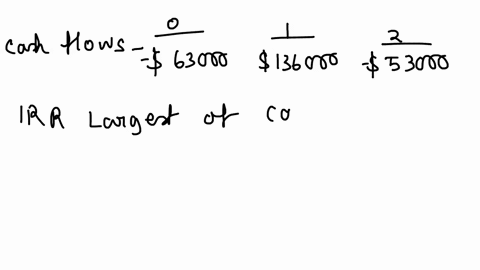 0 1 2
Cash flows - -$ 63000 $136000 -$53000
IRR Largest of co